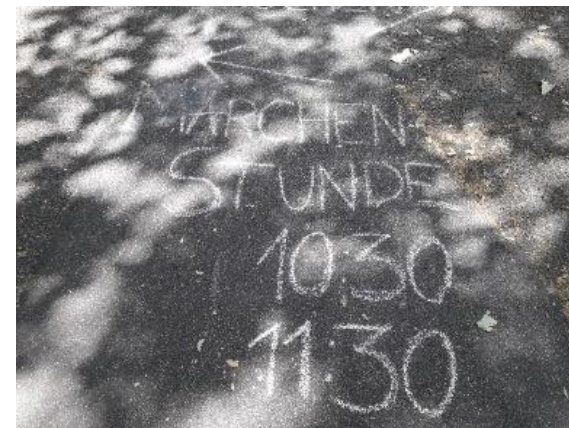 MÄRCHEN-
STUNDE
10:30
11:30